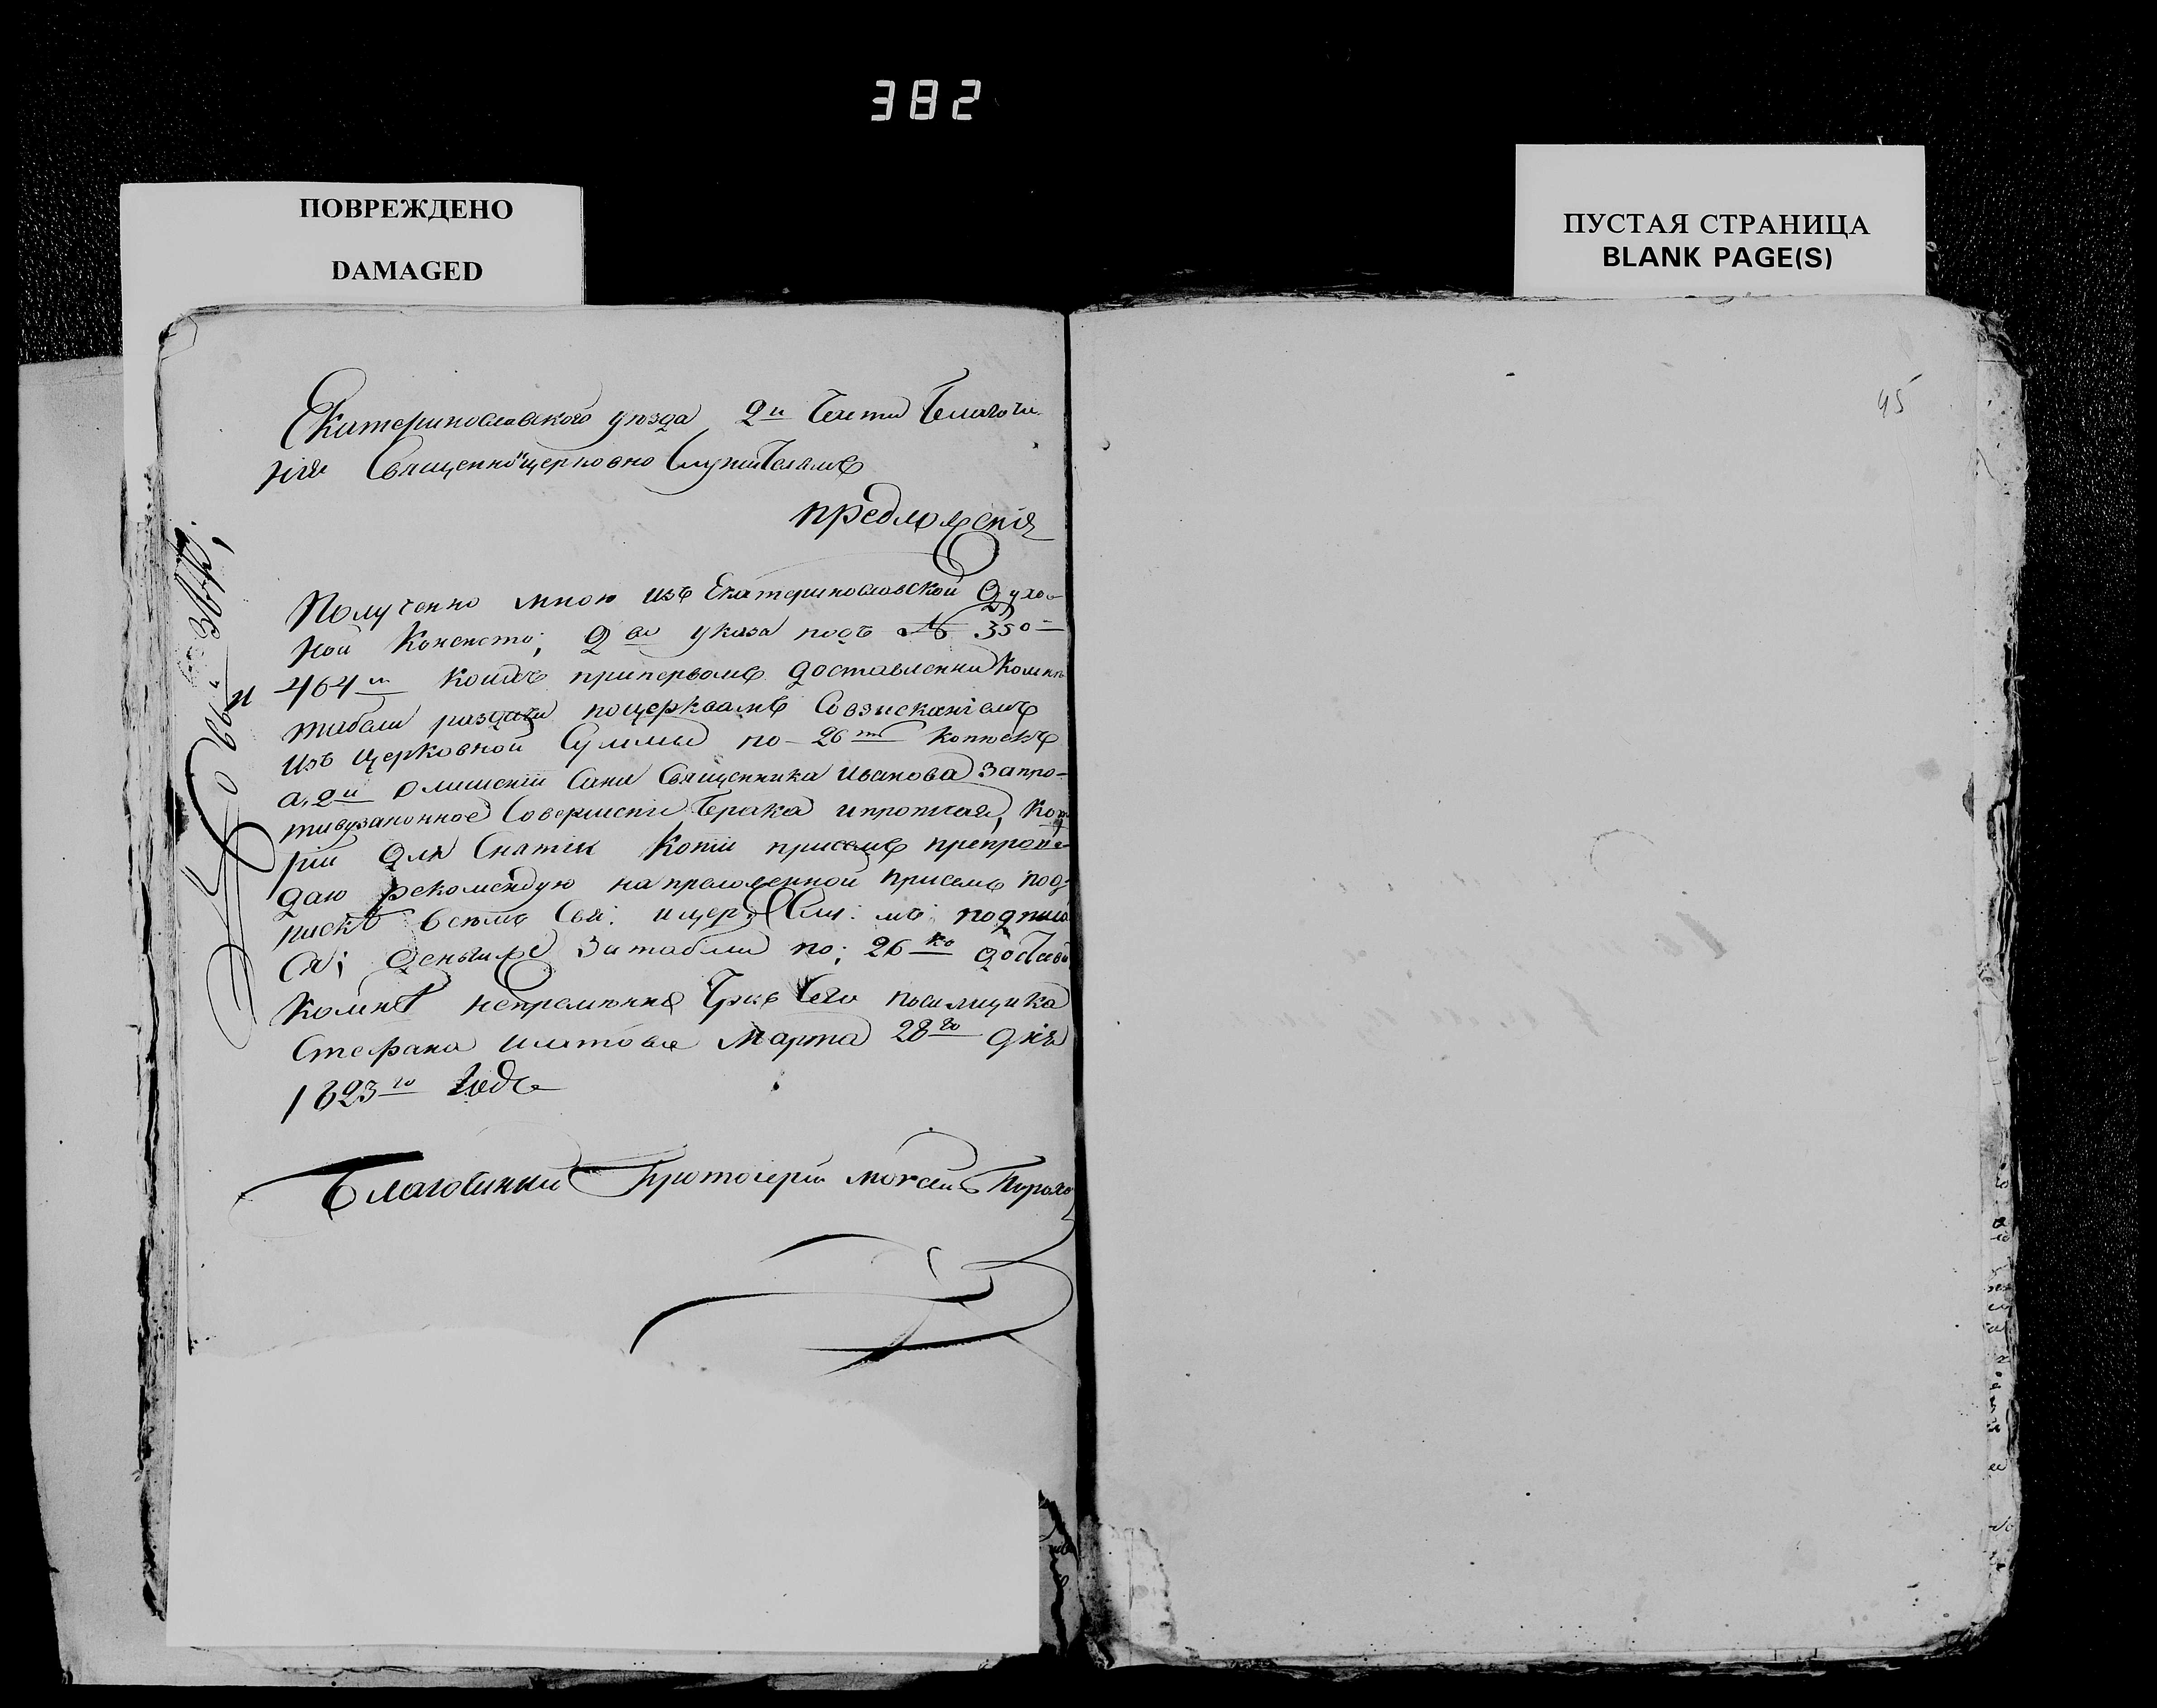 382
ПОВРЕЖДЕНО
DAMAGED
ПУСТАЯ СТРАНИЦА
BLANK PAGE(S)
45
Екатеринославского уезда 2й Части Благочи
нія Священно церковно Служителямъ
предложенія
Полученно мною изъ Екатеринославской Духо-
ной Консисто; 2 ва указа подъ № 350
и 464м коихъ припервомъ доставленни Комнѣ
табели раздачи поцерквамъ Совзисканіемъ
изъ Церковной Суммы по 26ть копѣекъ
а, 2й о лишеніи Сана Священника Иванова Запро-
тивузаконное Совершеніе Брака ипротчая, Кото
ріи Для Снятіи Копіи присемъ препрово
даю рекомендую напреложенной присемъ под
пискѣ всемъ Свя: ицер: Слу: мъ: подписа
ся; Деньги Затабели по; 26 ко достави
Комнѣ непремѣнно Чрезъ Сего посилщика
Стефана Марта 28го дня
1823го Года
Благочинный Протоіерей